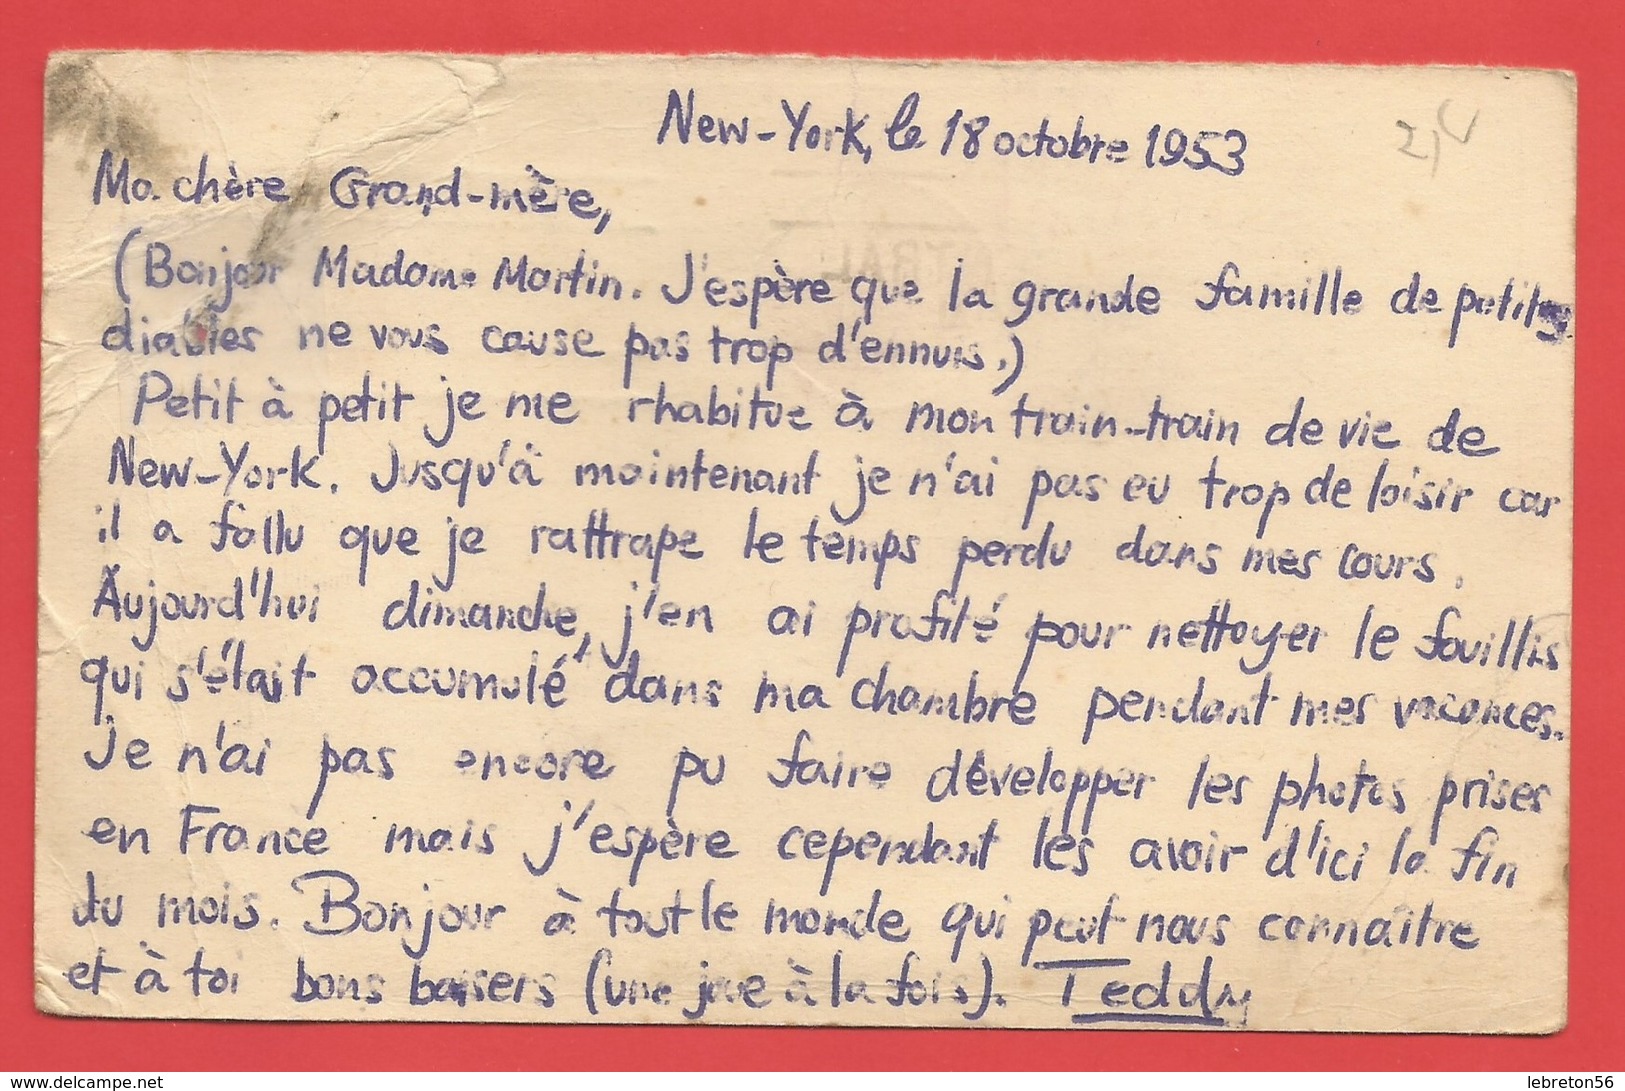 New-York, le 18 octobre 1953
Ma chère Grand-mère,
(Bonjour Madame Martin. J'espère que la grande famille de petits
diables ne vous cause pas trop d'ennuis.)
Petit à petit je me rhabitue à mon train-train de vie de
New-York. Jusqu'à maintenant je n'ai pas eu trop de loisir car
il a fallu que je rattrape le temps perdu dans mes cours.
Aujourd'hui dimanche, j'en ai profité pour nettoyer le fouillis
qui s'était accumulé dans ma chambre pendant mes vacances.
Je n'ai pas encore pu faire développer les photos prises
en France mais j'espère cependant les avoir d'ici la fin
du mois. Bonjour à tout le monde qui peut nous connaître
et à toi bons baisers (une joue à la fois). Teddy
delcampe.net
lebreton56